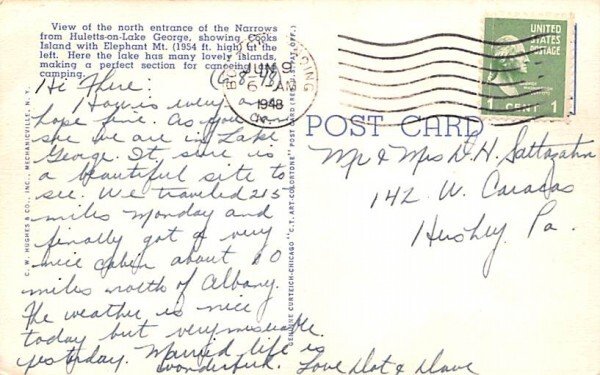 View of the north entrance of the Narrows
from Huletts-on-Lake George, showing Cooks
Island with Elephant Mt. (1954 ft. high) at the
left. Here the lake has many lovely islands,
making a perfect section for canoeing and
camping.
(6-8-48)
Hi There:
How is every one
hope fine. As you can
see we are in Lake
George. It sure is
a beautiful site to
see. We traveled 215
miles Monday and
finally got a very
nice cabin about 60
miles north of Albany.
The weather is nice
today but very miserable
yesterday. Married life is
wonderful. Love Dot & Dave
C. W. HUGHES & CO., INC., MECHANICVILLE, N. Y.
GENUINE CURTEICH-CHICAGO "C.T. ART-COLORTONE" POST CARD (REG. U.S. PAT. OFF.)
JUN 9
6 AM
1948
UNITED
STATES
POSTAGE
1 CENT 1
POST CARD
Mr & Mrs D. H. Sattazahn
142 W. Caracas
Hershey Pa.